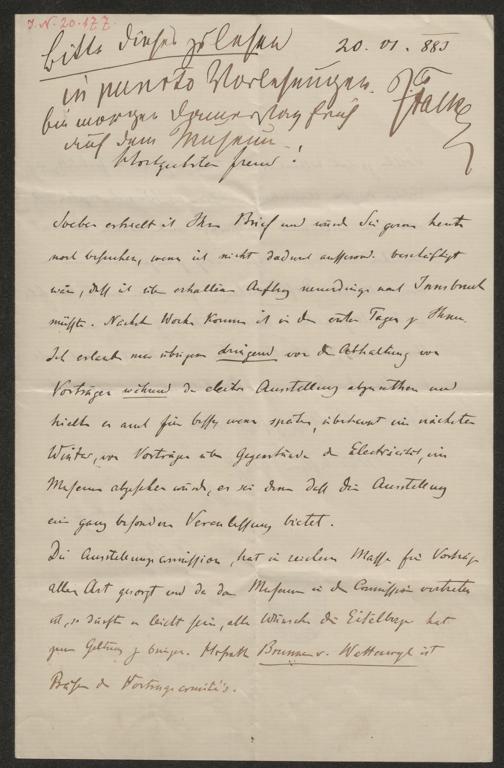 J. N. 20.477.
Bitte dieses zu lesen
20. VI. 883
in puncto Vorlesungen.
bis morgen Donnerstag früh
auf dem Museum.
Falke
Hochgeehrter Freund!
Soeben erhielt ich Ihren Brief und würde Sie gerne heute
noch besuchen, wenn ich nicht dadurch ausserord. beschäftigt
wäre, daß ich über erhaltenen Auftrag neuerdings nach Innsbruck
müßte. Nächste Woche komme ich in den ersten Tagen zu Ihnen.
Ich erlaube mir übrigens dringend von der Abhaltung von
Vorträgen während der elektr. Ausstellung abzurathen und
hielte es auch für besser, wenn später, überhaupt im nächsten
Winter, von Vorträgen über Gegenstände der Electricität, im
Museum abgesehen würde, es sei denn daß die Ausstellung
eine ganz besondere Veranlassung bietet.
Die Ausstellungscommission, hat in reichem Masse für Vorträge
aller Art gesorgt und da das Museum in der Commission vertreten
ist, so dürfte es leicht sein, alle Wünsche die Eitelberger hat
zur Geltung zu bringen. Hofrath Brunner v. Wattenwyl ist
Präses des Vortragscomités.